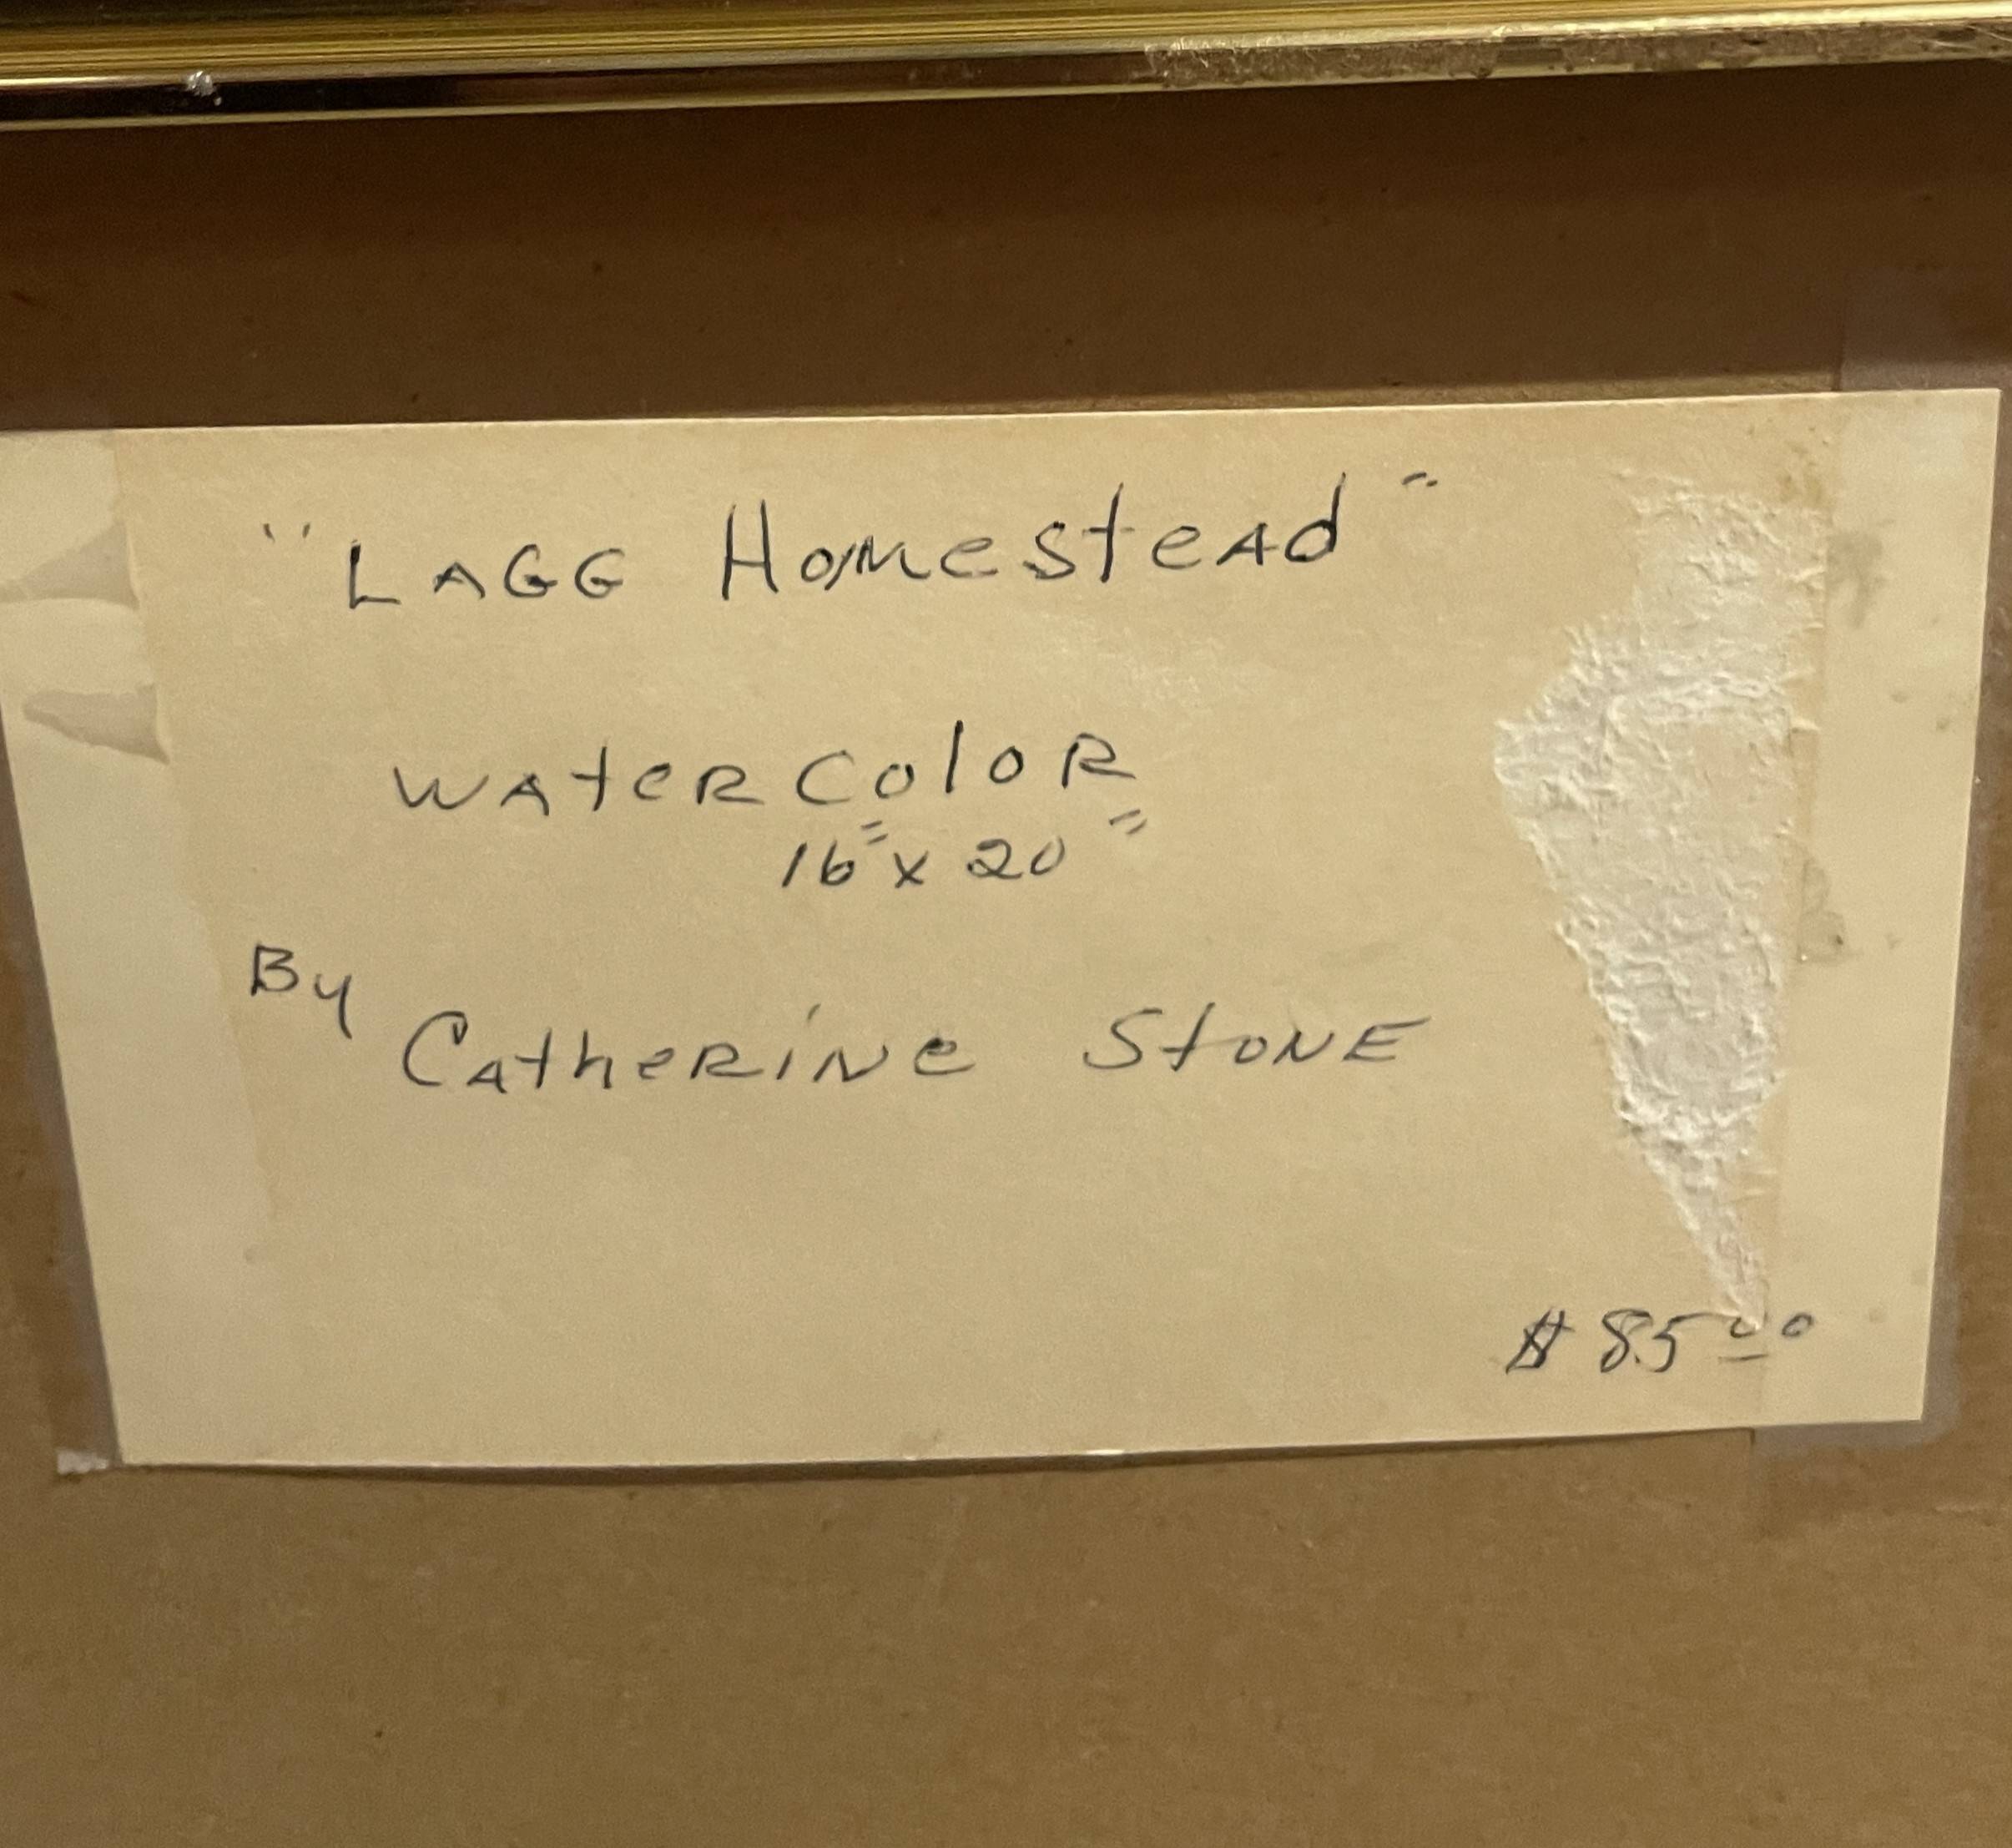 "LAGG Homestead"
WaterColor
16" x 20"
By
Catherine Stone
$85.00